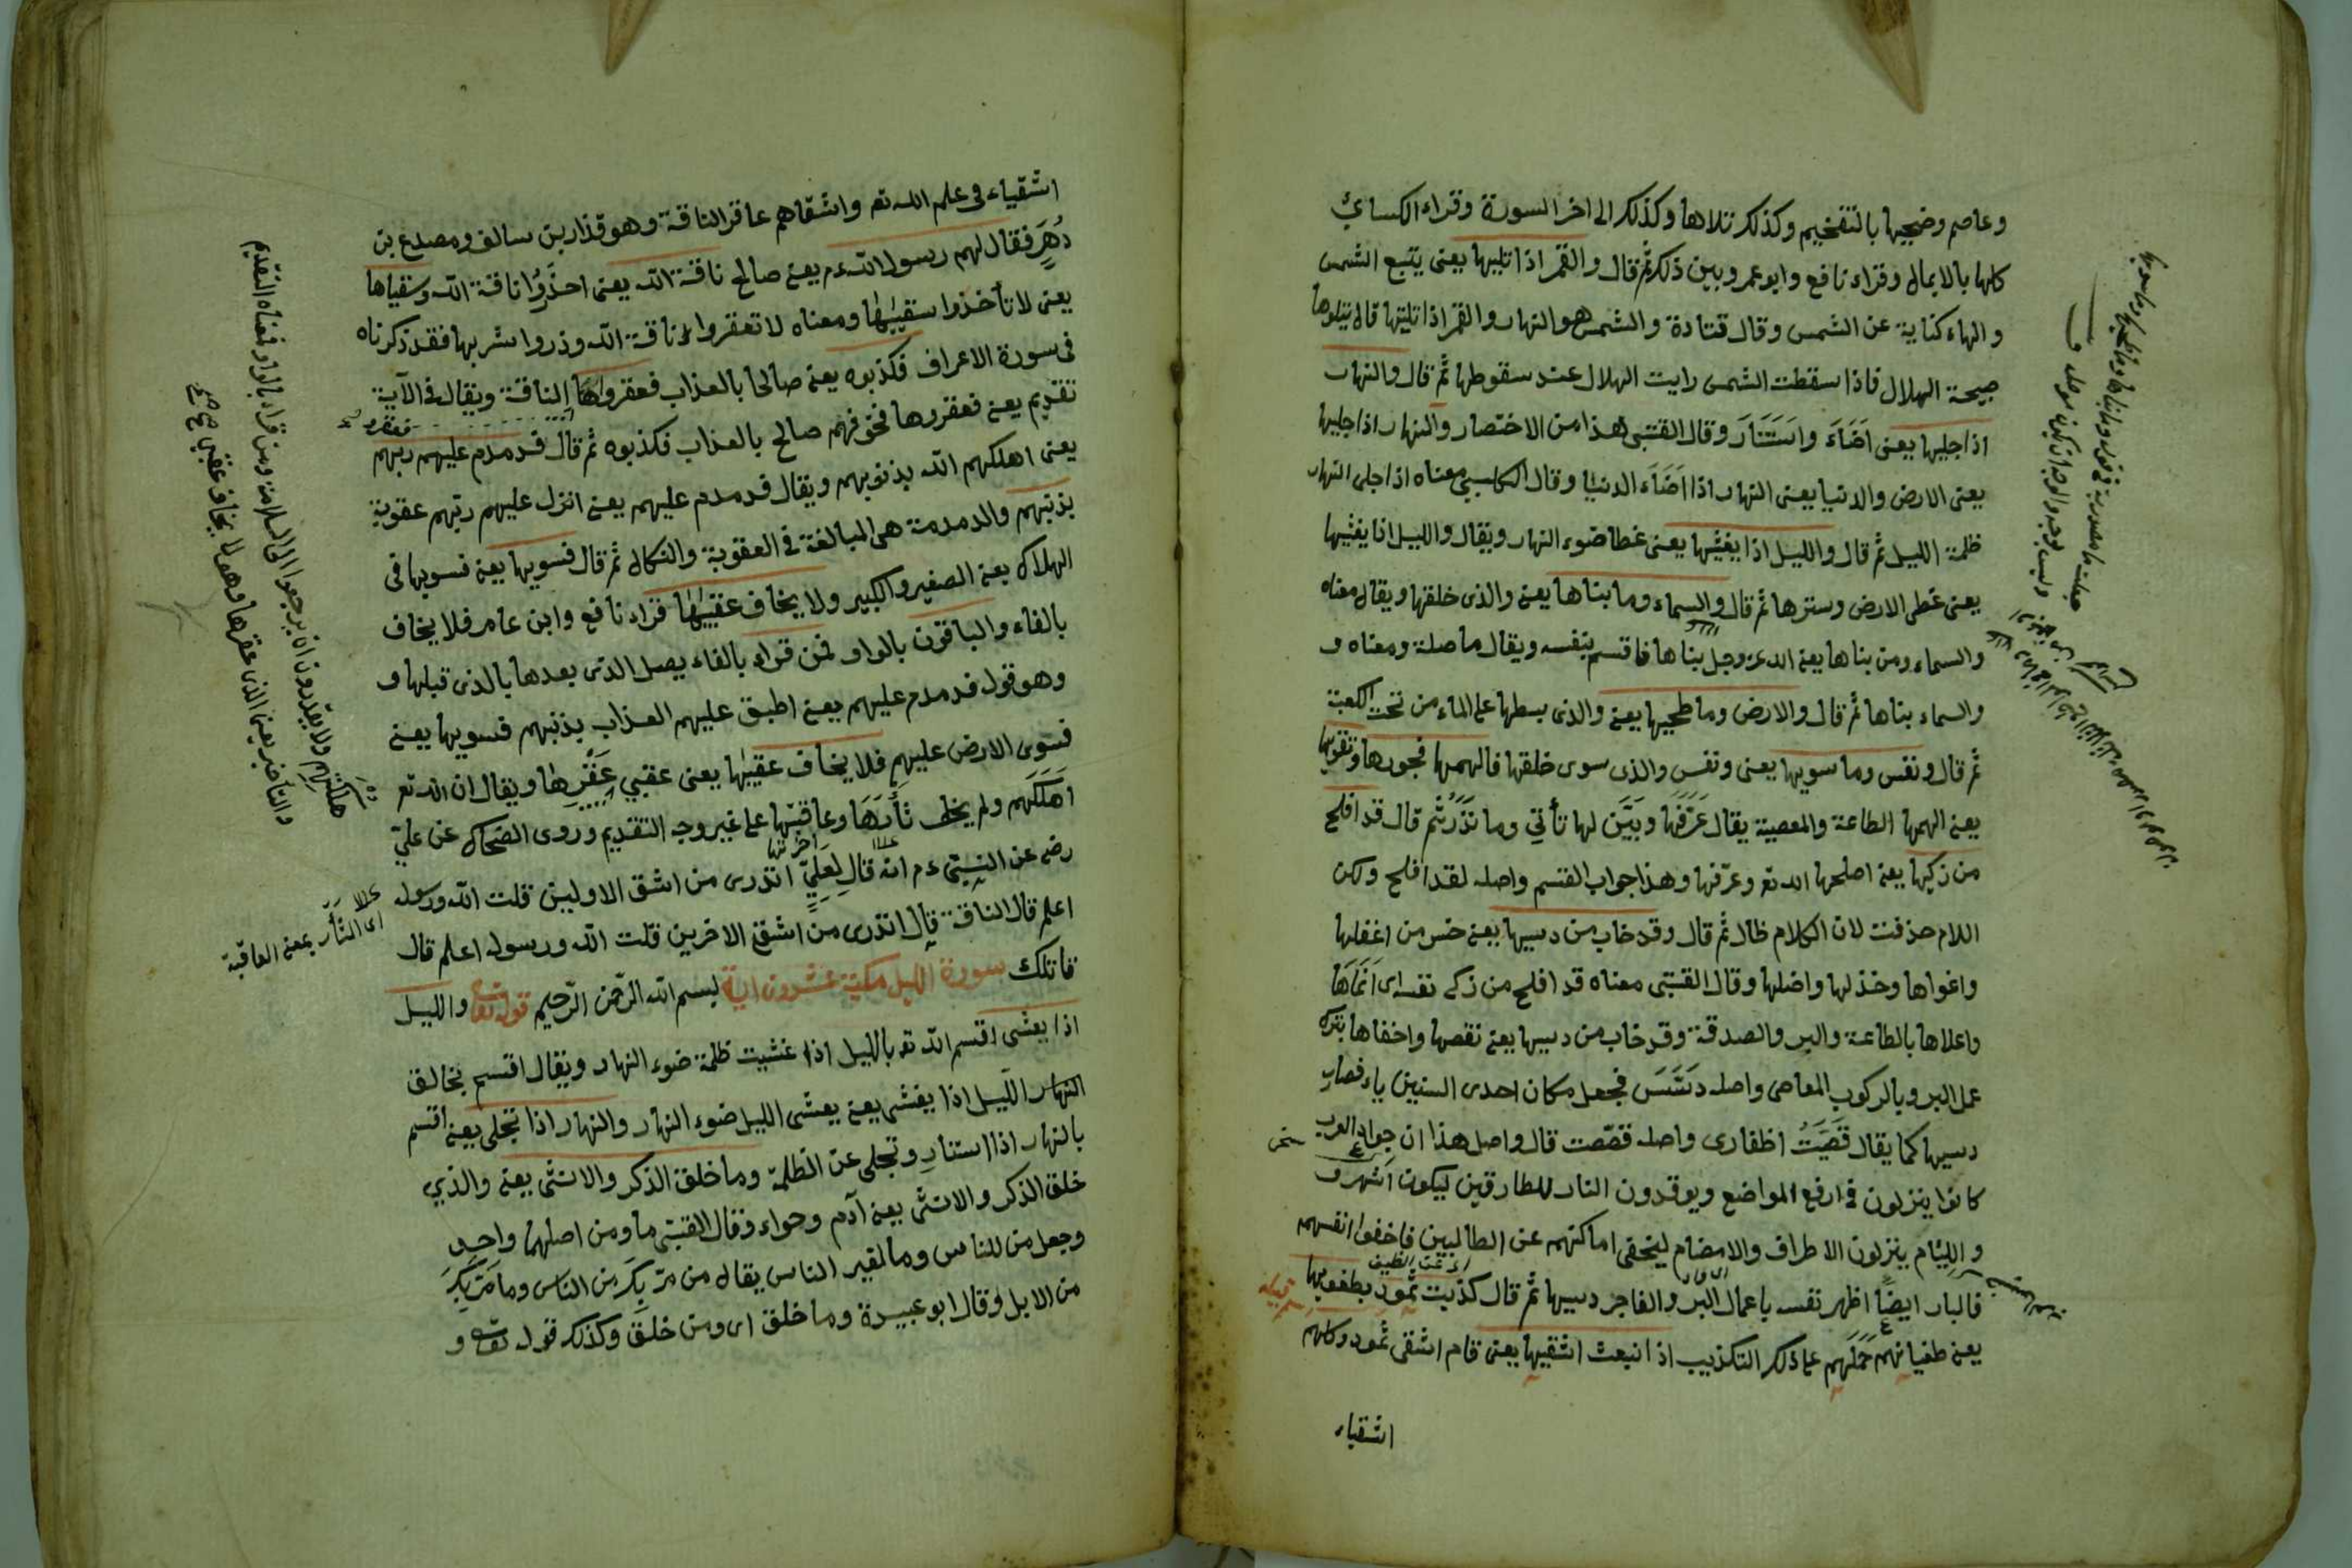 وعاصم وضحيها بالتفخيم وكذلك تلاها وكذلك الى اخر السورة وقراء الكسائي
كلها بالاماله وقراء نافع وابو عمر وبين ذلك ثم قال والقمر اذا تليها يعنى يتبع الشمس
والهاء كناية عن الشمس وقال قتادة والشمس هو النهار والقمر اذا تليها قال يتلوها
صبيحة الهلال فاذا سقطت الشمس رايت الهلال عند سقوطها ثم قال والنهار
اذا جليها يعنى اضاء واستنار وقال القتبى هذا من الاختصار والنهار اذا جليها
يعنى الارض والدنيا يعنى النهار اذا اضاء الدنيا وقال الكلبى معناه اذا جلى النهار
ظلمة الليل ثم قال والليل اذا يغشيها يعنى غطا ضوء النهار ويقال والليل اذا يغشيها
يعنى غطى الارض وسترها ثم قال والسماء وما بناها يعنى والذى خلقها ويقال معناه
والسماء ومن بناها يعنى الله عز وجل بناها فاقسم بنفسه ويقال ما صلة ومعناه و
والسماء بناها ثم قال والارض وما طحيها يعنى والذى بسطها على الماء من تحت الكعبة
ثم قال ونفس وما سويها يعنى ونفس والذى سوى خلقها فالهمها فجورها وتقويها
يعنى الهمها الطاعة والمعصية يقال عرفها وبين لها تأتي وما تذر ثم قال قد افلح
من زكيها يعنى اصلحها الله تع وعرفها وهذا جواب القسم واصله لقد افلح ولكن
اللام حذفت لان الكلام طال ثم قال وقد خاب من دسيها يعنى خسر من اغفلها
واغواها وخذلها واضلها وقال القتبى معناه قد افلح من زكى نفسه اى انماها
واعلاها بالطاعة والبر والصدقة وقد خاب من دسيها يعنى نقصها واخفاها بترك
عمل البر وبالركوب المعاصى واصله دسس فجعل مكان احدى السنين ياء فصار
دسيها كما يقال قصيت اظفارى واصله قصصت قال واصل هذا ان جواد العرب
كانوا ينزلون فى ارفع المواضع ويوقدون النار للطارقين ليكون اشهر و
واللئام ينزلون الاطراف والاهضام ليخفى اماكنهم عن الطالبين فاخفوا انفسهم
فالبار ايضا اظهر نفسه باعمال البر والفاجر دسيها ثم قال كذبت ثمود بطغويها
يعنى طغيانهم حملهم على ذلك التكذيب اذ انبعث اشقيها يعنى قام اشقى ثمود وكلهم
اشقياء
اشقياء فى علم الله تع واشقاهم عاقر الناقة وهو قذار بن سالف ومصدع بن
دهر فقال لهم رسول الله ءم يعنى صالح ناقة الله يعنى احذروا ناقة الله وسقياها
يعنى لا تأخذوا سقيها ومعناه لا تعقروا ناقة الله وذروا شربها فقد ذكرناه
فى سورة الاعراف فكذبوه يعنى صالحا بالعذاب فعقروها الناقة ويقال فى الآية
تقديم يعنى فعقروها فخوفهم صالح بالعذاب فكذبوه ثم قال فدمدم عليهم ربهم
يعنى اهلكهم الله بذنوبهم ويقال فدمدم عليهم يعنى انزل عليهم ربهم عقوبة
بذنبهم والدمدمة هى المبالغة فى العقوبة والنكال ثم قال فسويها يعنى فسويها فى
الهلاك يعنى الصغير والكبير ولا يخاف عقبيها قراء نافع وابن عامر فلا يخاف
بالفاء والباقون بالواو فمن قراء بالفاء يصل الذى بعدها بالذى قبلها و
وهو قوله فدمدم عليهم يعنى اطبق عليهم العذاب بذنبهم فسويها يعنى
فسوى الارض عليهم فلا يخاف عقبيها يعنى عقبي عقرها ويقال ان الله تع
اهلكهم ولم يخف ثأرها وعاقبتها على غير وجه التقديم وروى الضحاك عن علي
رضى عن النبي ءم انه قال لعلي اتدرى من اشقى الاولين قلت الله ورسوله
اعلم قال الناقة قال اتدرى من اشقى الاخرين قلت الله ورسوله اعلم قال
قاتلك سورة الليل مكية عشرون اية بسم الله الرحمن الرحيم قوله تعا والليل
اذا يغشى اقسم الله تع بالليل اذا غشيت ظلمة ضوء النهار ويقال اقسم بخالق
النهار الليل اذا يغشى يعنى يغشى الليل ضوء النهار والنهار اذا تجلى يعنى اقسم
بالنهار اذا استنار وتجلى عن الظلمة وما خلق الذكر والانثى يعنى والذي
خلق الذكر والانثى يعنى آدم وحواء وقال القتبى ما ومن اصلهما واحد
وجعل من للناس وما لغير الناس يقال من مر بك من الناس وما مر بك
من الابل وقال ابو عبيدة وما خلق اى ومن خلق وكذلك قوله تعا و
اى الثأر بمعنى العاقبة